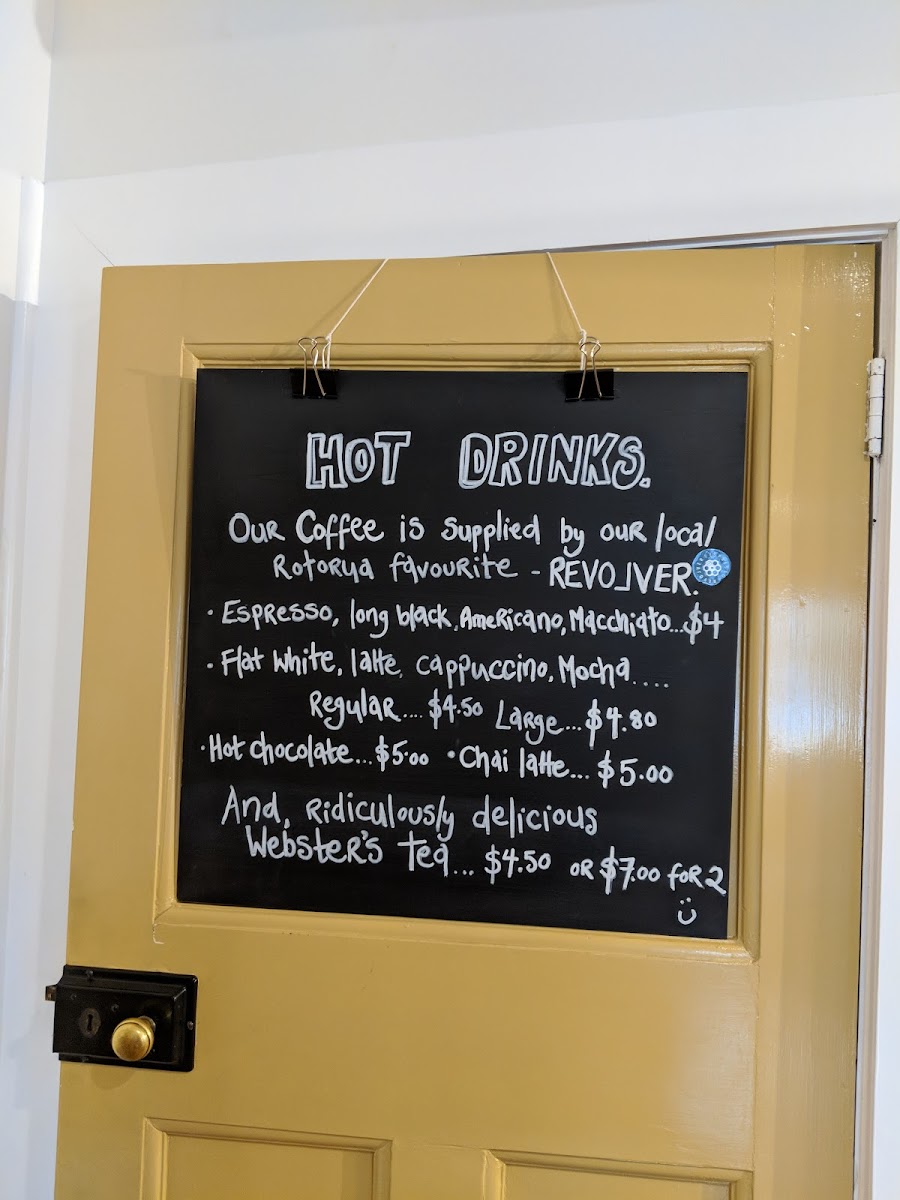 HOT DRINKS.
Our Coffee is supplied by our local
Rotorua favourite - REVOLVER.
· Espresso, long black, Americano, Macchiato...$4
· Flat White, latte, cappuccino, Mocha....
Regular.... $4.50 Large...$4.80
· Hot chocolate...$5.00 · Chai latte... $5.00
And, Ridiculously delicious
Webster's tea... $4.50 or $7.00 for 2